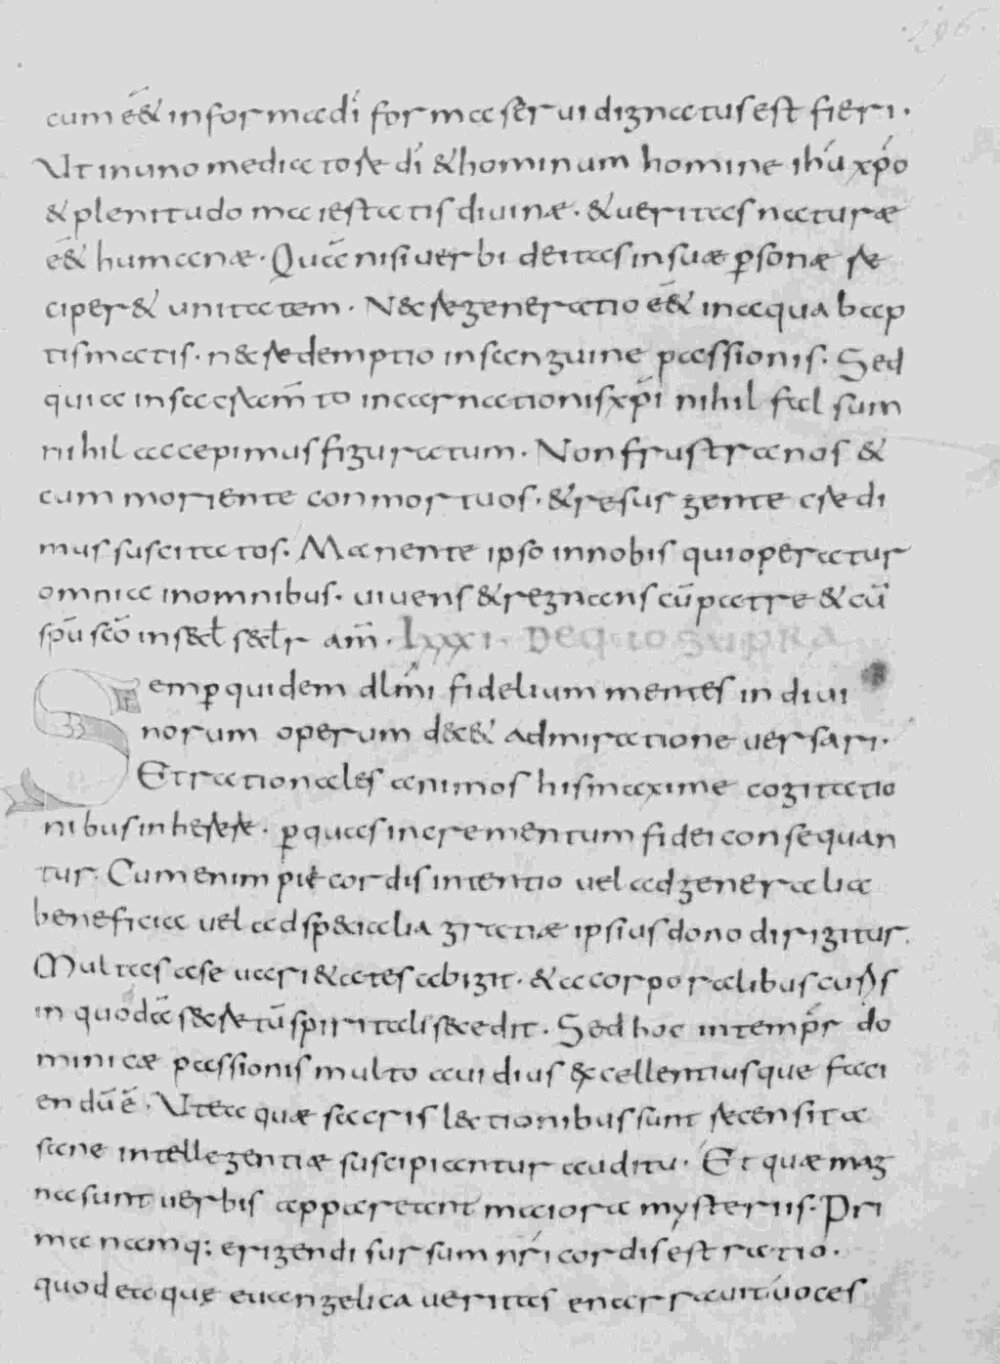 .296.
cum ēēt in forma dī forma serui dignatus est fieri.
Ut in uno mediatore dī & hominum homine ihū xp̄o
& plenitudo maiestatis diuinæ. & ueritas naturæ
ēēt humanæ. Quā nisi uerbi deitas in suæ p̱sonæ re
ciper& unitatem. Nec regeneratio ēēt in aqua bap
tismatis. nec redemptio in sanguine passionis. Sed
quia in sacram̄to incarnationis xp̄i nihil falsum
nihil accepimus figuratum. Non frustra nos &
cum moriente conmortuos. & resurgente credi
mus suscitatos. Manente ipso in nobis qui operatur
omnia in omnibus. uiuens & regnans cū patre & cū
sp̄u sc̄o in sæcl̄ sæcl̄r am̄. Lxxi. De quo supra
Semp̱ quidem dlm̄i fidelium mentes in diui
norum operum decet admiratione uersari.
Et rationales animos his maxime cogitatio
nibus inherere. p̱ quas incrementum fidei consequan
tur. Cum enim pie cordis intentio uel ad generalia
beneficia uel ad specialia gratiæ ipsius dono dirigitur.
Multas a se uarietates abigit. & a corporalibus curis
in quodā secretū spiritali secedit. Sed hoc in temp̄r do
minicæ passionis multo auidius excellentiusque faci
endū ē. Ut ea quæ sacris lectionibus sunt recensita
sane intellegentiæ suscipiantur auditu. Et quæ mag
na sunt uerbis appareant maiora mysteriis. Pri
ma namq: erigendi sursum nr̄i cordis est ratio.
quod ea que euangelica ueritas enarrauit uoces